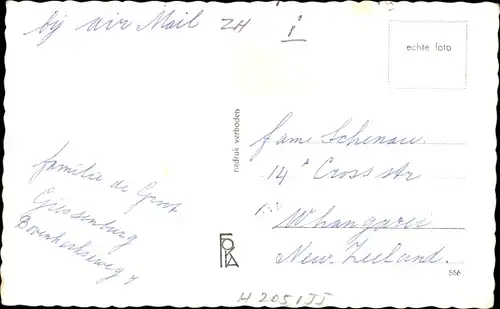 by air Mail
ZH
i
echte foto
nadruk verboden
familie de Groot
Giessenburg
fam. Schenau.
14 A Cross str
Whangarei
New. Zeeland.
FOKA
566
H 2051JJ